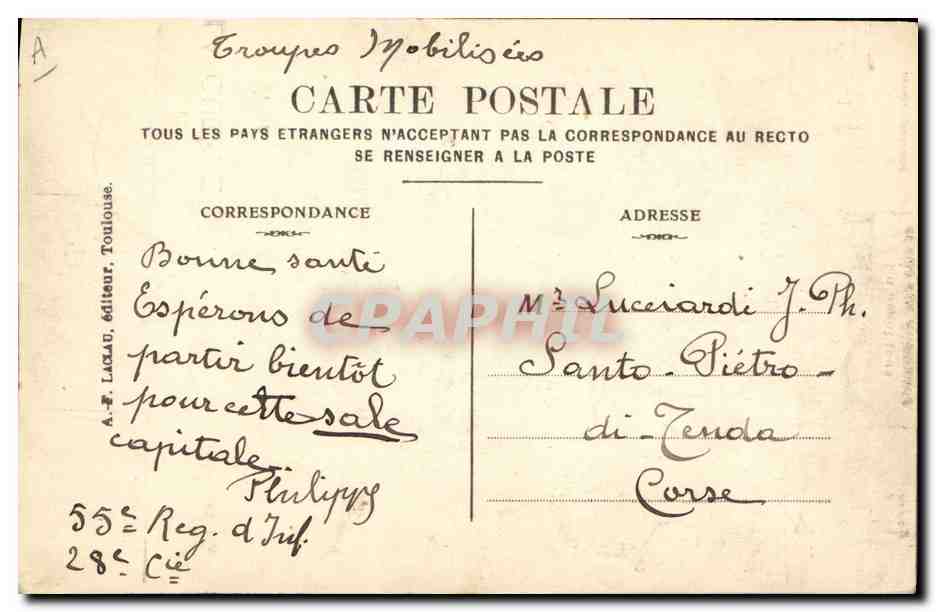 A
Troupes Mobilisées
CARTE POSTALE
TOUS LES PAYS ETRANGERS N'ACCEPTANT PAS LA CORRESPONDANCE AU RECTO
SE RENSEIGNER A LA POSTE
A.-F. LACLAU, éditeur, Toulouse.
CORRESPONDANCE
Bonne santé
Espérons de
partir bientôt
pour cette sale
capitale.
Philippe
55e Reg. d'Inf.
28e Cie
ADRESSE
Mr Lucciardi J. Ph.
Santo-Piétro-
di-Tenda
Corse
CPAPHIL